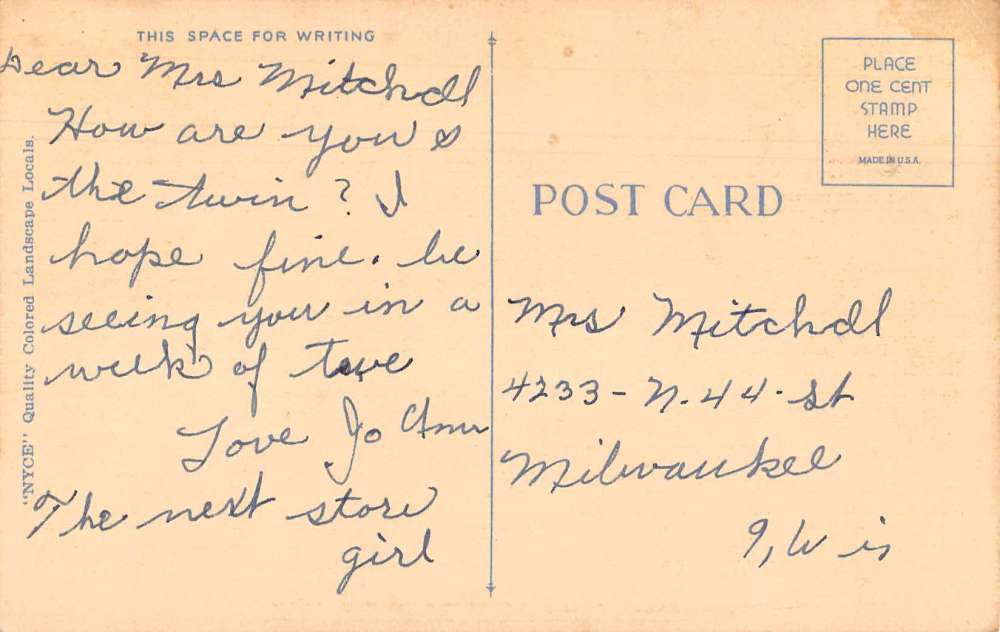 THIS SPACE FOR WRITING
Dear Mrs Mitchell
How are you &
the twin? I
hope fine. be
seeing you in a
week of twe
Love Jo Ann
The next store
girl
"NYCE" Quality Colored Landscape Locals.
PLACE
ONE CENT
STAMP
HERE
MADE IN U.S.A.
POST CARD
Mrs Mitchell
4233-N.44.St
Milwaukee
9, Wis